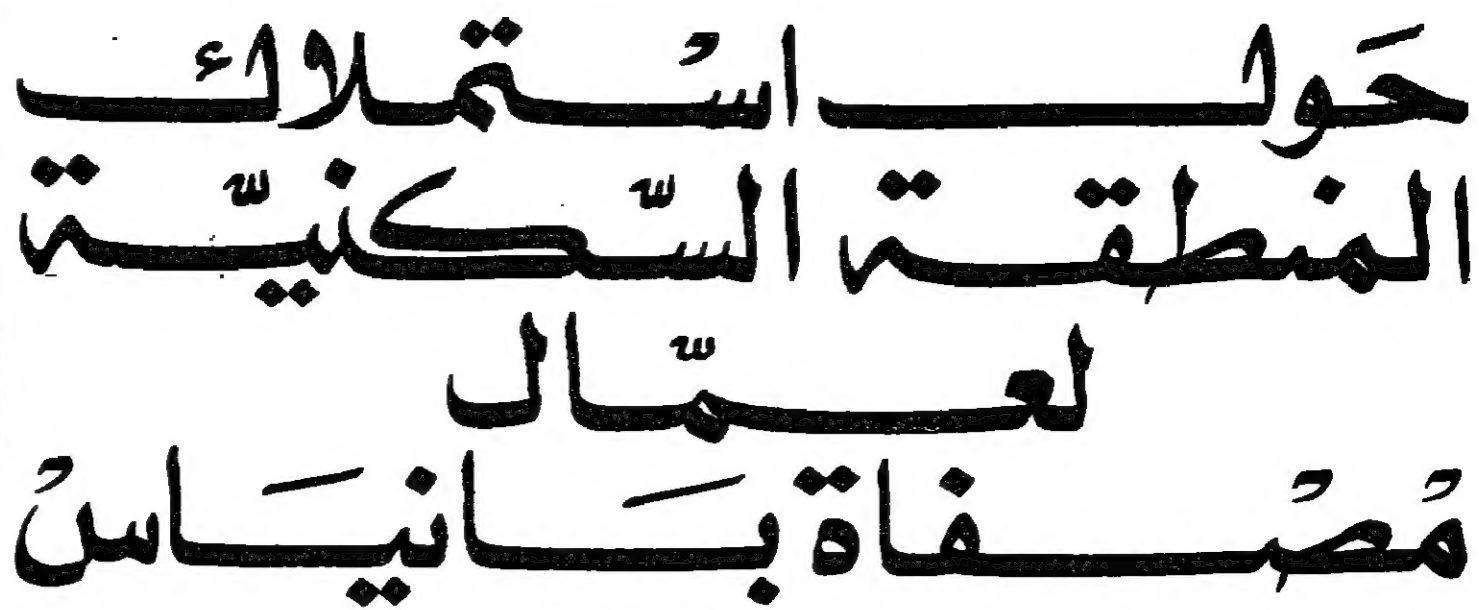 حَول اسْتملاك
المنطقة السّكنيّة
لعمّال
مُصْفاة بَانيَاسْ